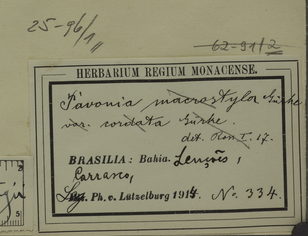 25-96/1
62-91/2
HERBARIUM REGIUM MONACENSE.
Pavonia macrostyla Gürke
var. cordata Gürke.
det. Hon I. 17.
BRASILIA: Bahia. Lençois,
Carrasco,
Lg. Ph. v. Lützelburg 1914. No. 334.